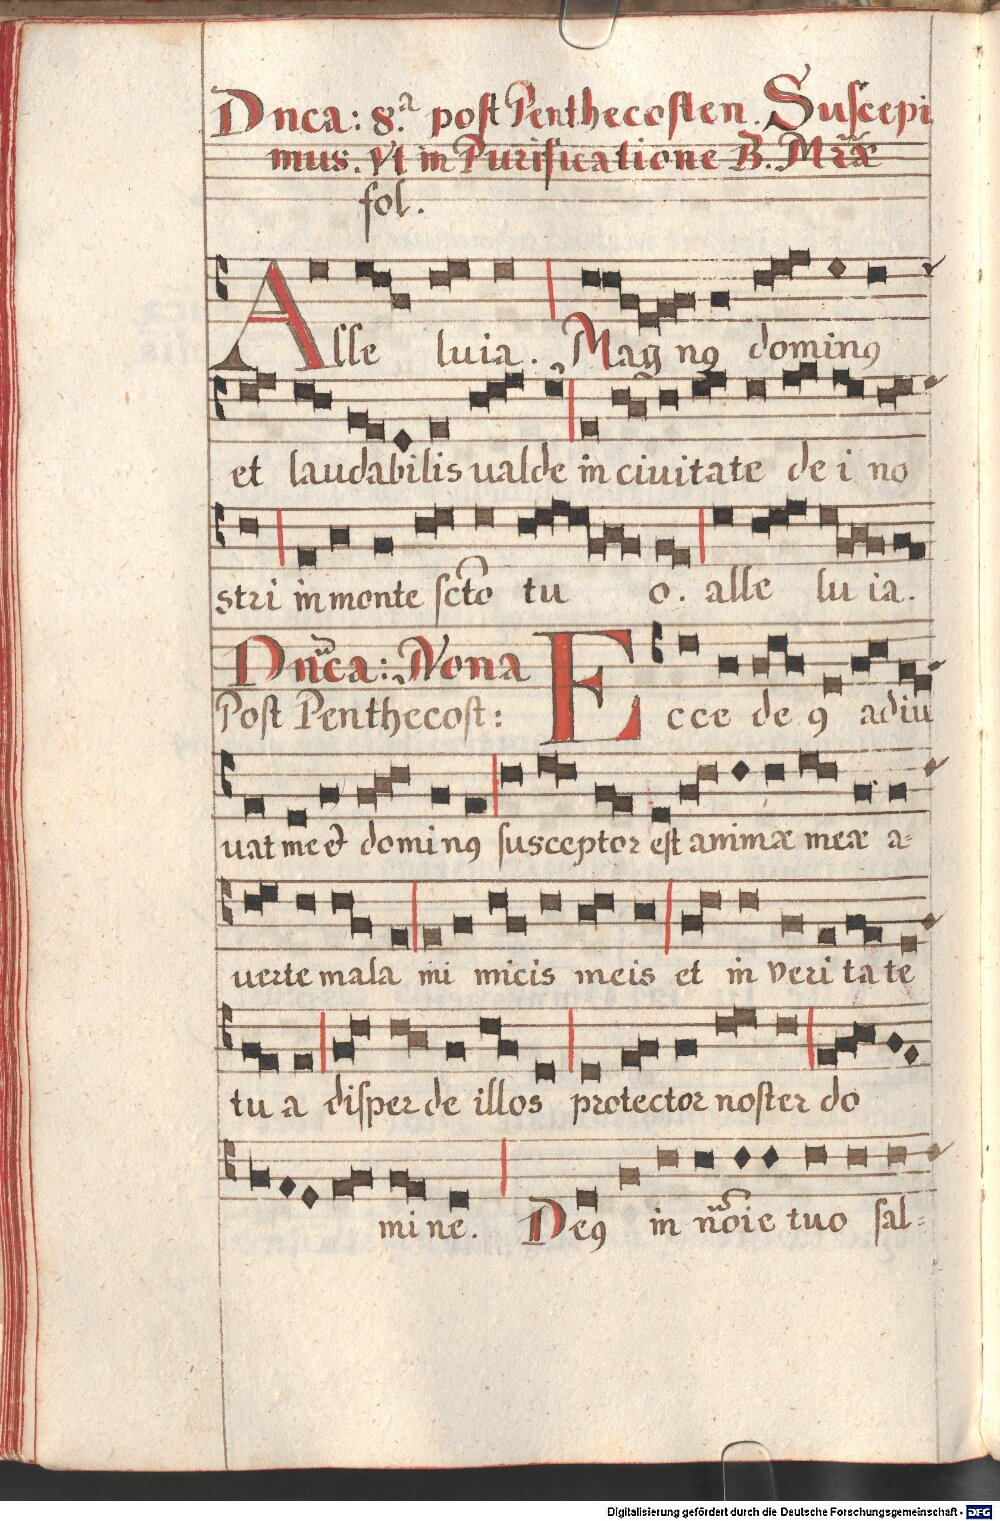 Dnca: 8.ª post Penthecosten. Suscepi
mus. Vt in Purificatione B. Mriæ
fol.
Alle luia. Mag nꝰ dominꝰ
et laudabilis ualde in ciuitate de i no
stri in monte scto tu o. alle lu ia.
Dnica: Nona
Post Penthecost:
Ecce de ꝰ adiu
uat me et dominꝰ susceptor est animæ meæ a-
uerte mala ini micis meis et in veri ta te
tu a disper de illos protector noster do
mi ne. Deꝰ in noie tuo sal=
Digitalisierung gefördert durch die Deutsche Forschungsgemeinschaft - DFG